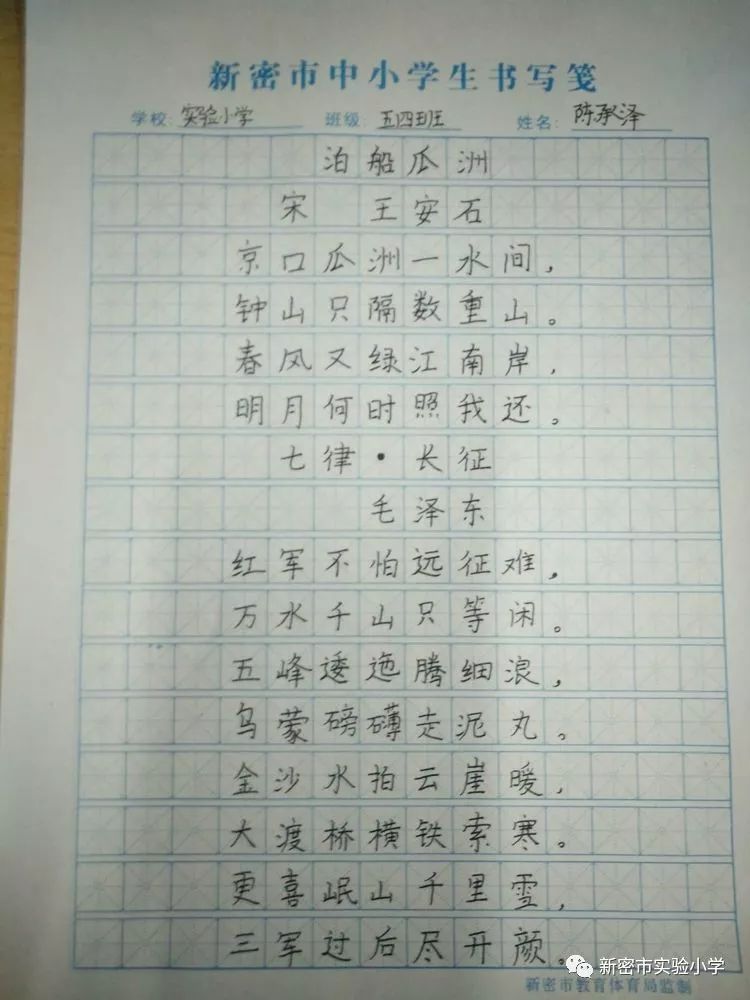 新密市中小学生书写笺
学校：实验小学 班级：五四班 姓名：陈承泽
泊船瓜洲
宋 王安石
京口瓜洲一水间，
钟山只隔数重山。
春风又绿江南岸，
明月何时照我还。
七律·长征
毛泽东
红军不怕远征难，
万水千山只等闲。
五峰逶迤腾细浪，
乌蒙磅礴走泥丸。
金沙水拍云崖暖，
大渡桥横铁索寒。
更喜岷山千里雪，
三军过后尽开颜。
新密市实验小学
新密市教育体育局监制